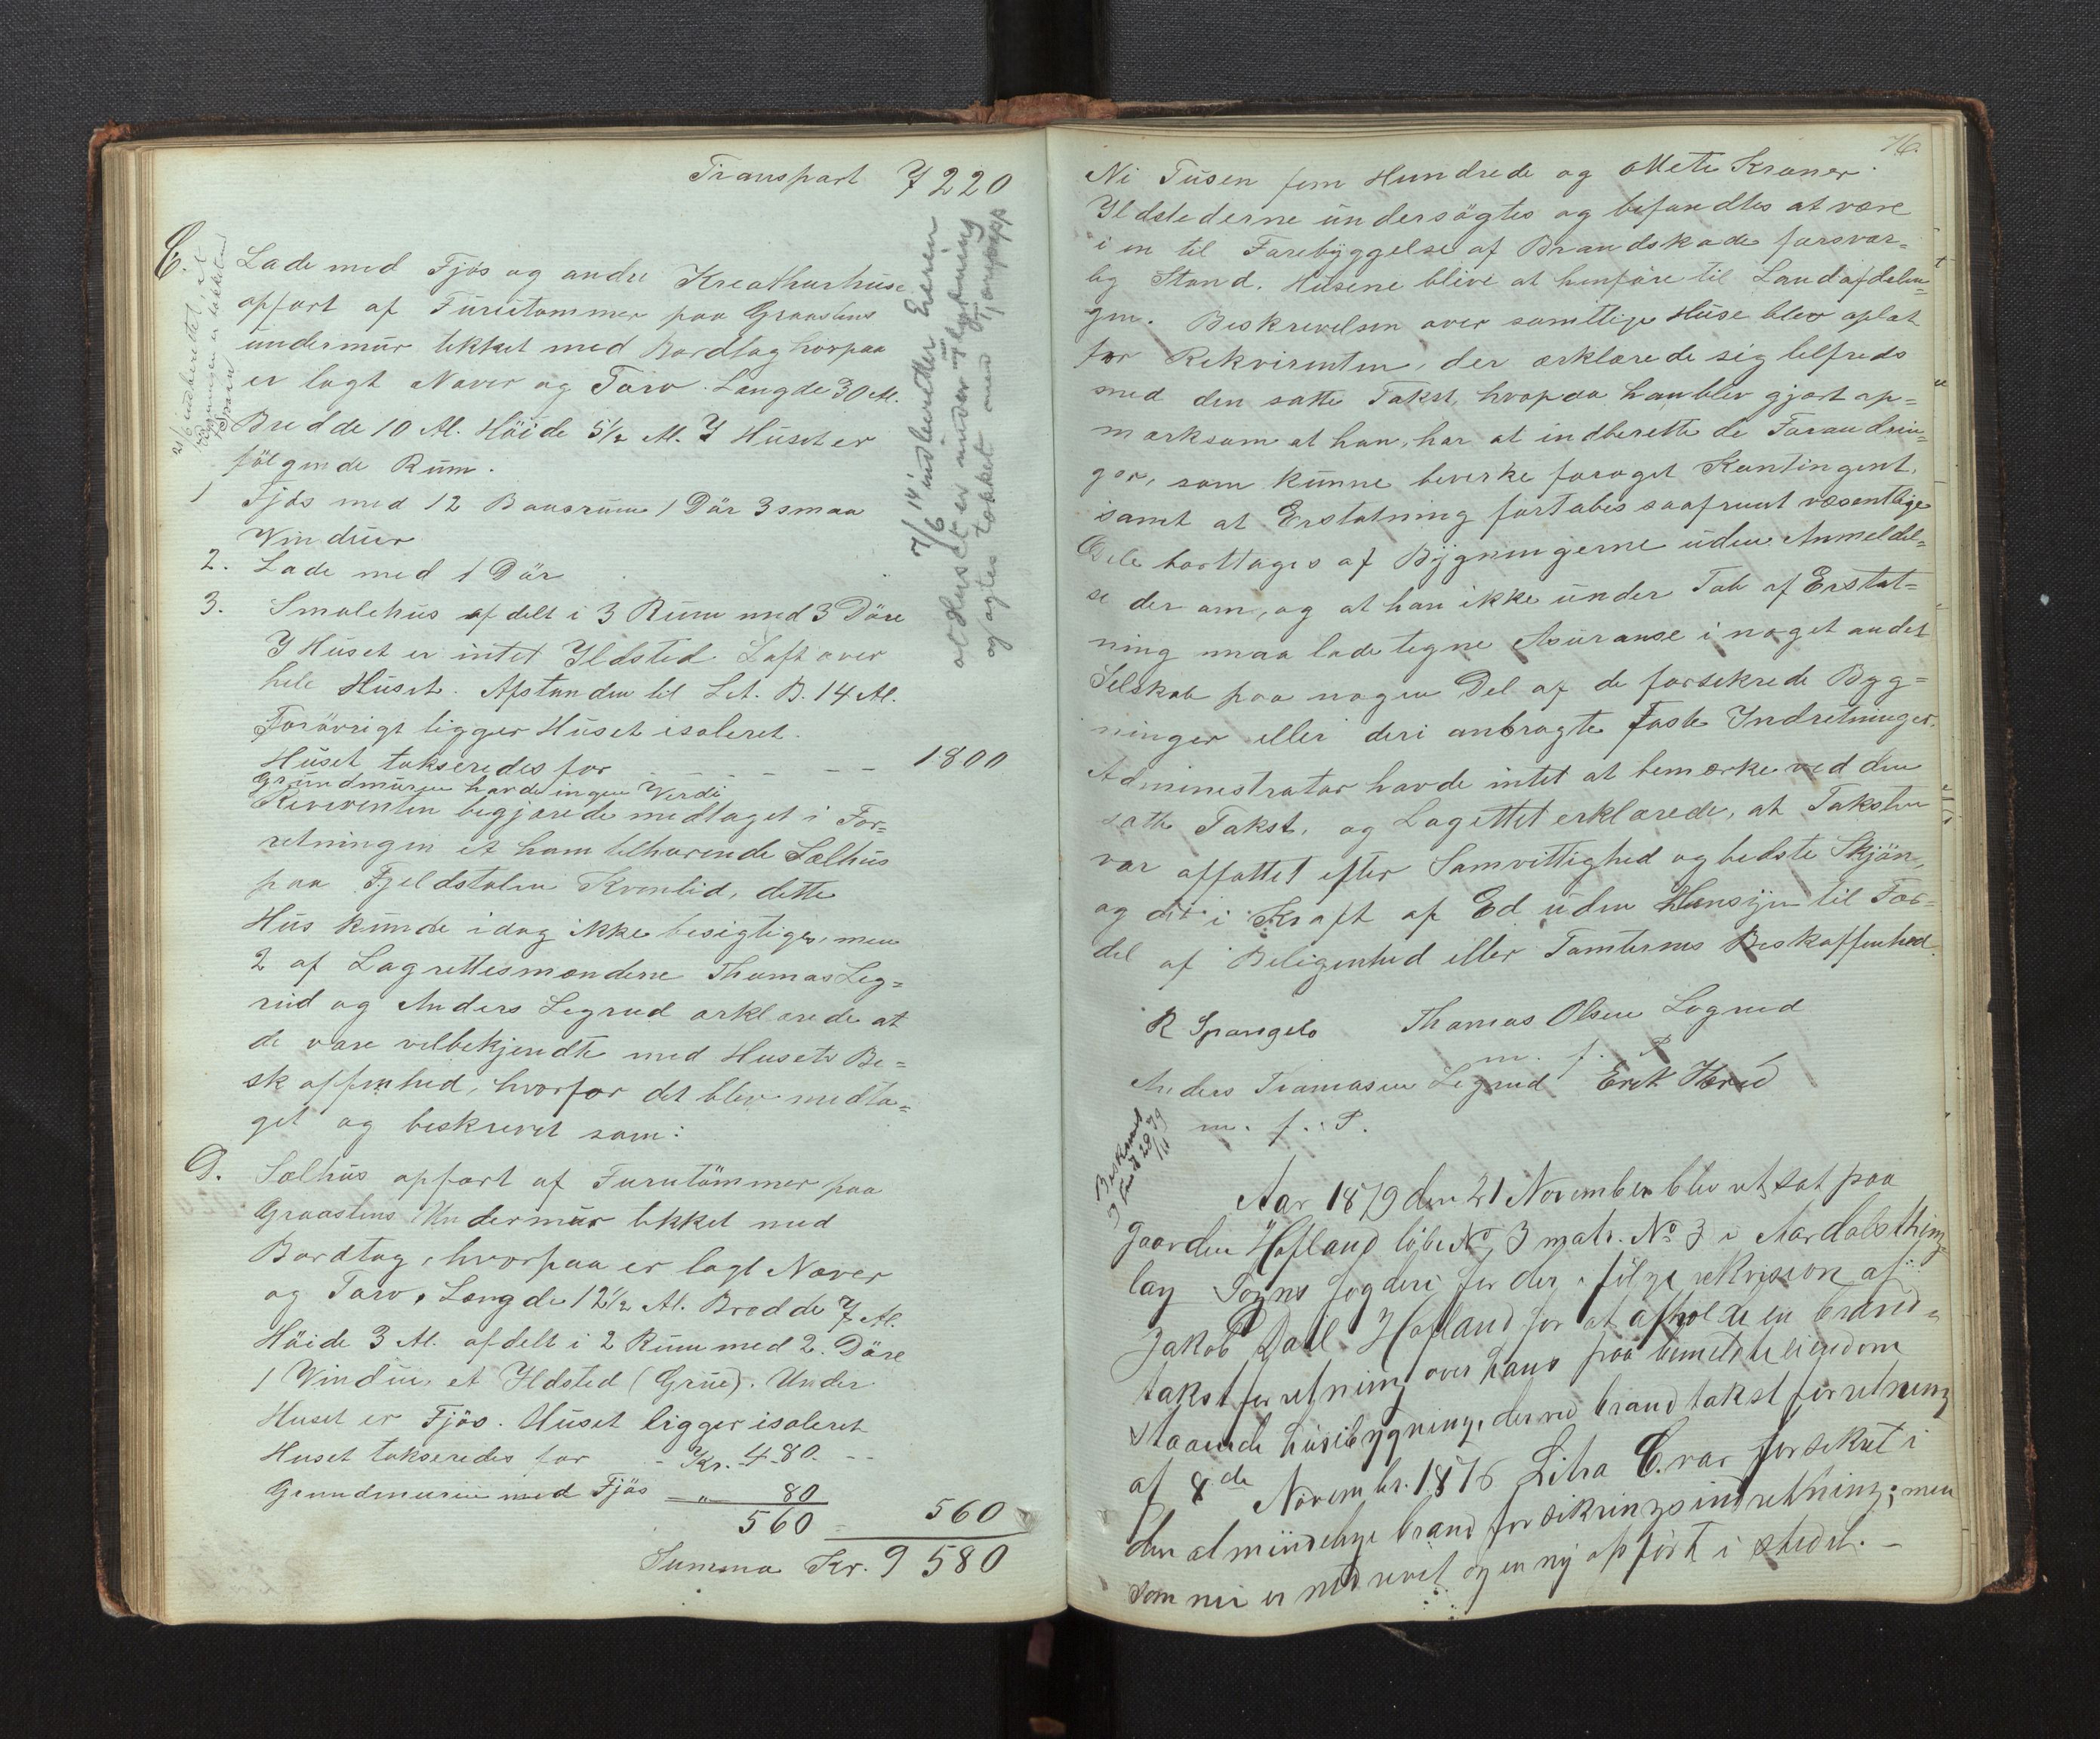 Transport 7220
C. Lade med Fjös og andre Kreathurhuse
opfört af Furutömmer paa Graastens
undermur tekket med Bordtag hvorpaa
er lagt Næver og Tørv. Længde 30 Al.
Bredde 10 Al. Höide 5 1/2 Al. I Huset er
fölgende Rum.
1 Fjös med 12 Baasrum 1 Dör 3 smaa
Vinduer
2. Lade med 1 Dör
3. Smalehus afdelt i 3 Rum med 3 Döre
I Huset er intet Ildsted Loft over
hele Huset. Afstanden til Lit. B. 14 Al.
Forövrigt ligger Huset isoleret.
Huset takseredes for - - - - - 1800
Grundmuren havde ingen Verdi
Rekvirenten begjærede medtaget i For=
retningen et ham tilhørende Sælhus
paa Fjeldstølen Kvenlid, dette
Hus kunde idag ikke besigtiges, men
2 af Lagrettesmændene Thomas Leg=
rud og Anders Legrud erklærede at
de vare velbekjendte med Husets Be=
skaffenhed, hvorfor det blev medta=
get og beskrevet som:
D. Sælhus opført af Furutömmer paa
Graastens Undermur tekket med
Bordtag, hvorpaa er lagt Næver
og Tørv. Længde 12 1/2 Al. Bredde 7 Al.
Höide 3 Al. afdelt i 2 Rum med 2. Döre
1 Vindue, et Ildsted (Grue). Under
Huset er Fjös. Huset ligger isoleret
Huset takseredes for - Kr. 480 - -
Grundmuren med Fjös " 80
560 560
Summa Kr. 9580
7/6 14 indberetter Eieren
at Huset er under nybygning
og agtes tækket med
76.
Ni Tusen fem Hundrede og otteti Kroner.
Ildstederne undersögtes og befandtes at være
i en til Forebyggelse af Brandskade forsvar=
lig Stand. Husene blive at henføre til Landafdelin=
gen. Beskrivelsen over samtlige Huse blev oplæst
for Rekvirenten, der erklærede sig tilfreds
med den satte Takst, hvorpaa han blev gjort op=
mærksom at han, har at indberette de Forandrin=
ger, som kunne bevirke forøget Kontingent,
samt at Erstatning fortabes saafremt væsentlige
Dele borttages af Bygningerne uden Anmeldel=
se der om, og at han ikke under Tab af Erstat=
ning maa lade tegne Asuranse i noget andet
Selskab paa nogen Del af de forsikrede Byg=
ninger eller deri anbragte faste Indretninger.
Administrator havde intet at bemærke ved den
satte Takst, og Lagrettet erklærede, at Taksten
var affattet efter Samvittighed og bedste Skjön,
og det i Kraft af Ed uden Hensyn til For=
del af Beligenhed eller Tomternes Beskaffenhed.
R Spangelo Thomas Olsen Legrud
m. f. P
Anders Tomasen Legrud Erik Herud
m. f. P.
Aar 1879 den 21 November blev ret sat paa
gaarden Hofland løbe No 3 matr. No 3 i Aardals thing=
lag Sogns fogderi før der ifølge rekvision af
Jakob Dail Hofland for at afholde en brand=
takst forretning over hans paa bemeldte eiendom
staaende huusbygning, der ved brandtakst forretning
af 8de Novembr. 1876 Litra C. var forsikret i
den almindelige brandforsikringsindretning; men
som nu er nedrevet og en ny opført i stedet. -